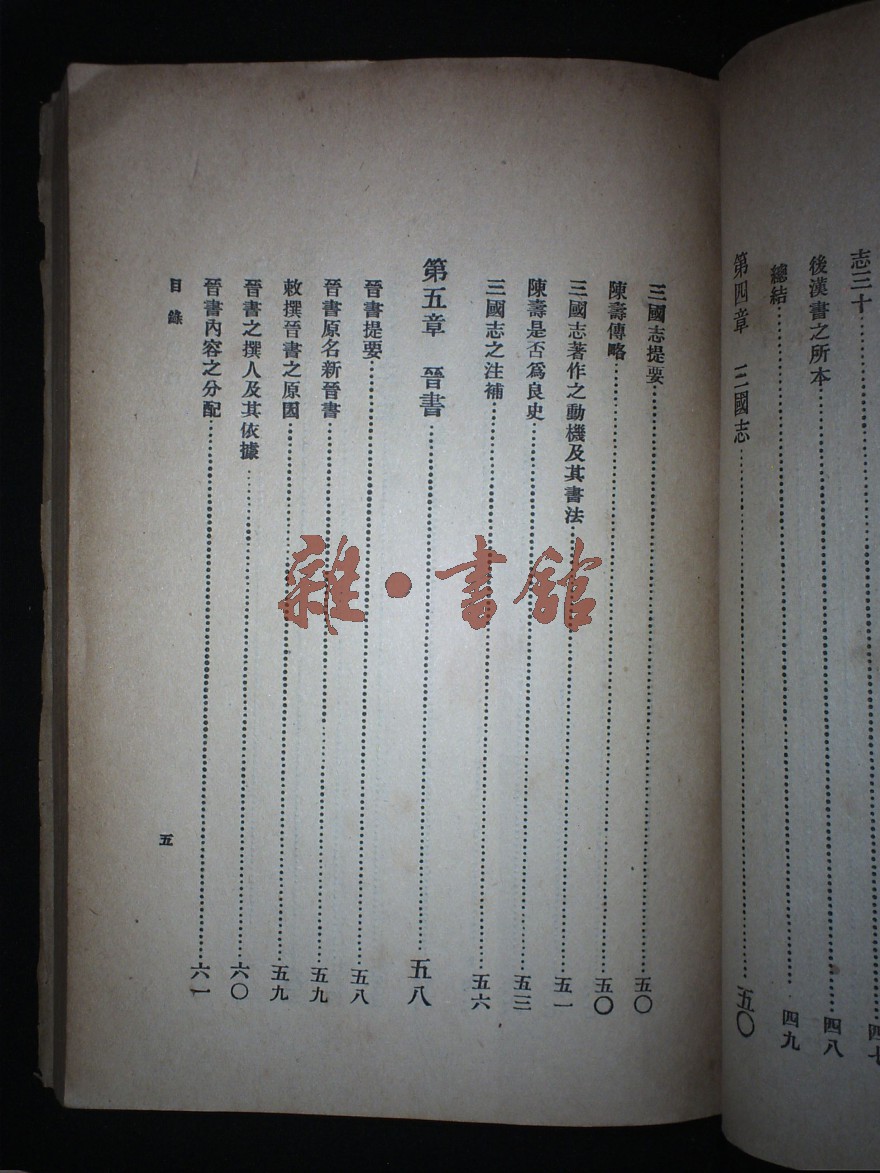 志三十⋯⋯四七
後漢書之所本⋯⋯四八
總結⋯⋯四九
第四章 三國志⋯⋯五〇
三國志提要⋯⋯五〇
陳壽傳略⋯⋯五〇
三國志著作之動機及其書法⋯⋯五一
陳壽是否爲良史⋯⋯五三
三國志之注補⋯⋯五六
第五章 晉書⋯⋯五八
晉書提要⋯⋯五八
晉書原名新晉書⋯⋯五九
敕撰晉書之原因⋯⋯五九
晉書之撰人及其依據⋯⋯六〇
晉書內容之分配⋯⋯六一
目錄
五
雜·書館